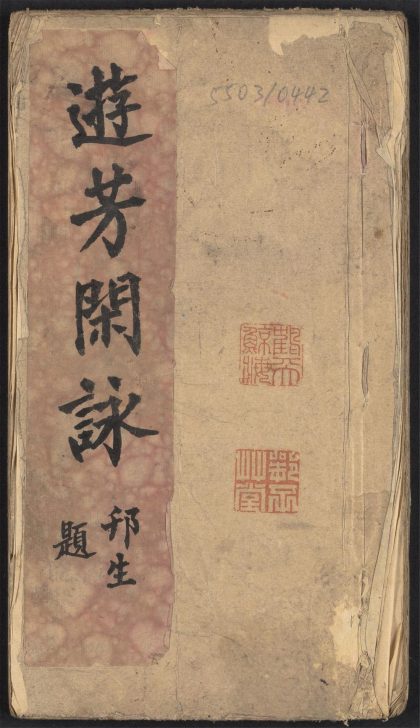 5503/0442
遊芳閑詠
邦生
題